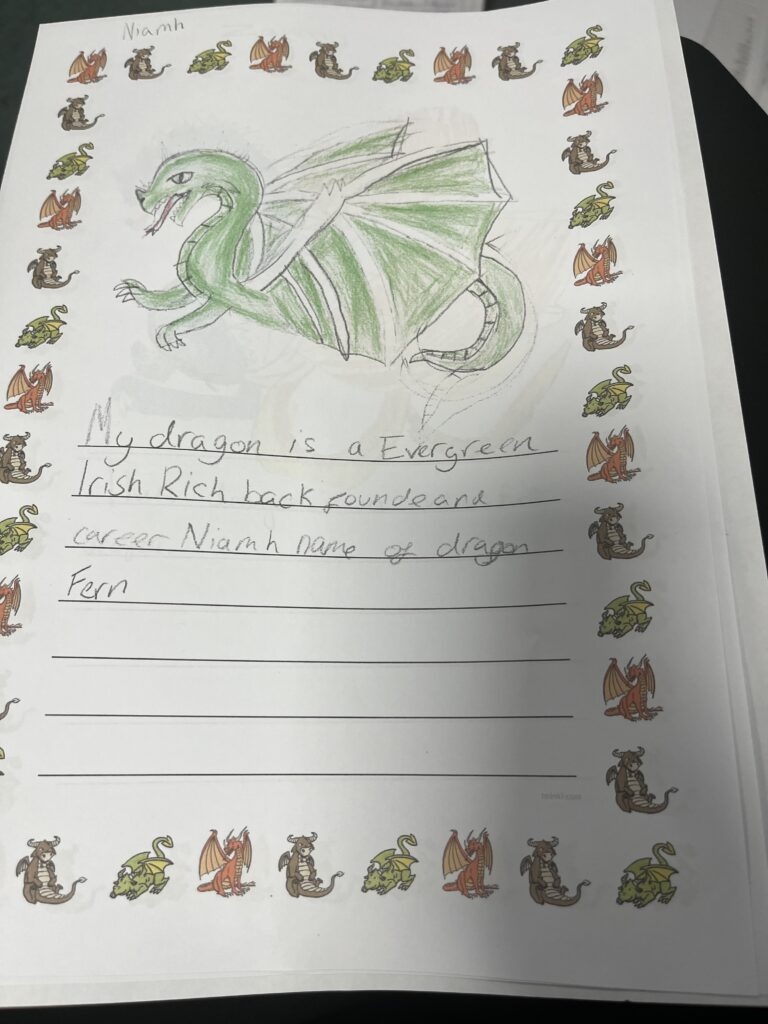 Niamh
My dragon is a Evergreen
Irish Rich back founde and
career Niamh name of dragon
Fern
twinkl.com